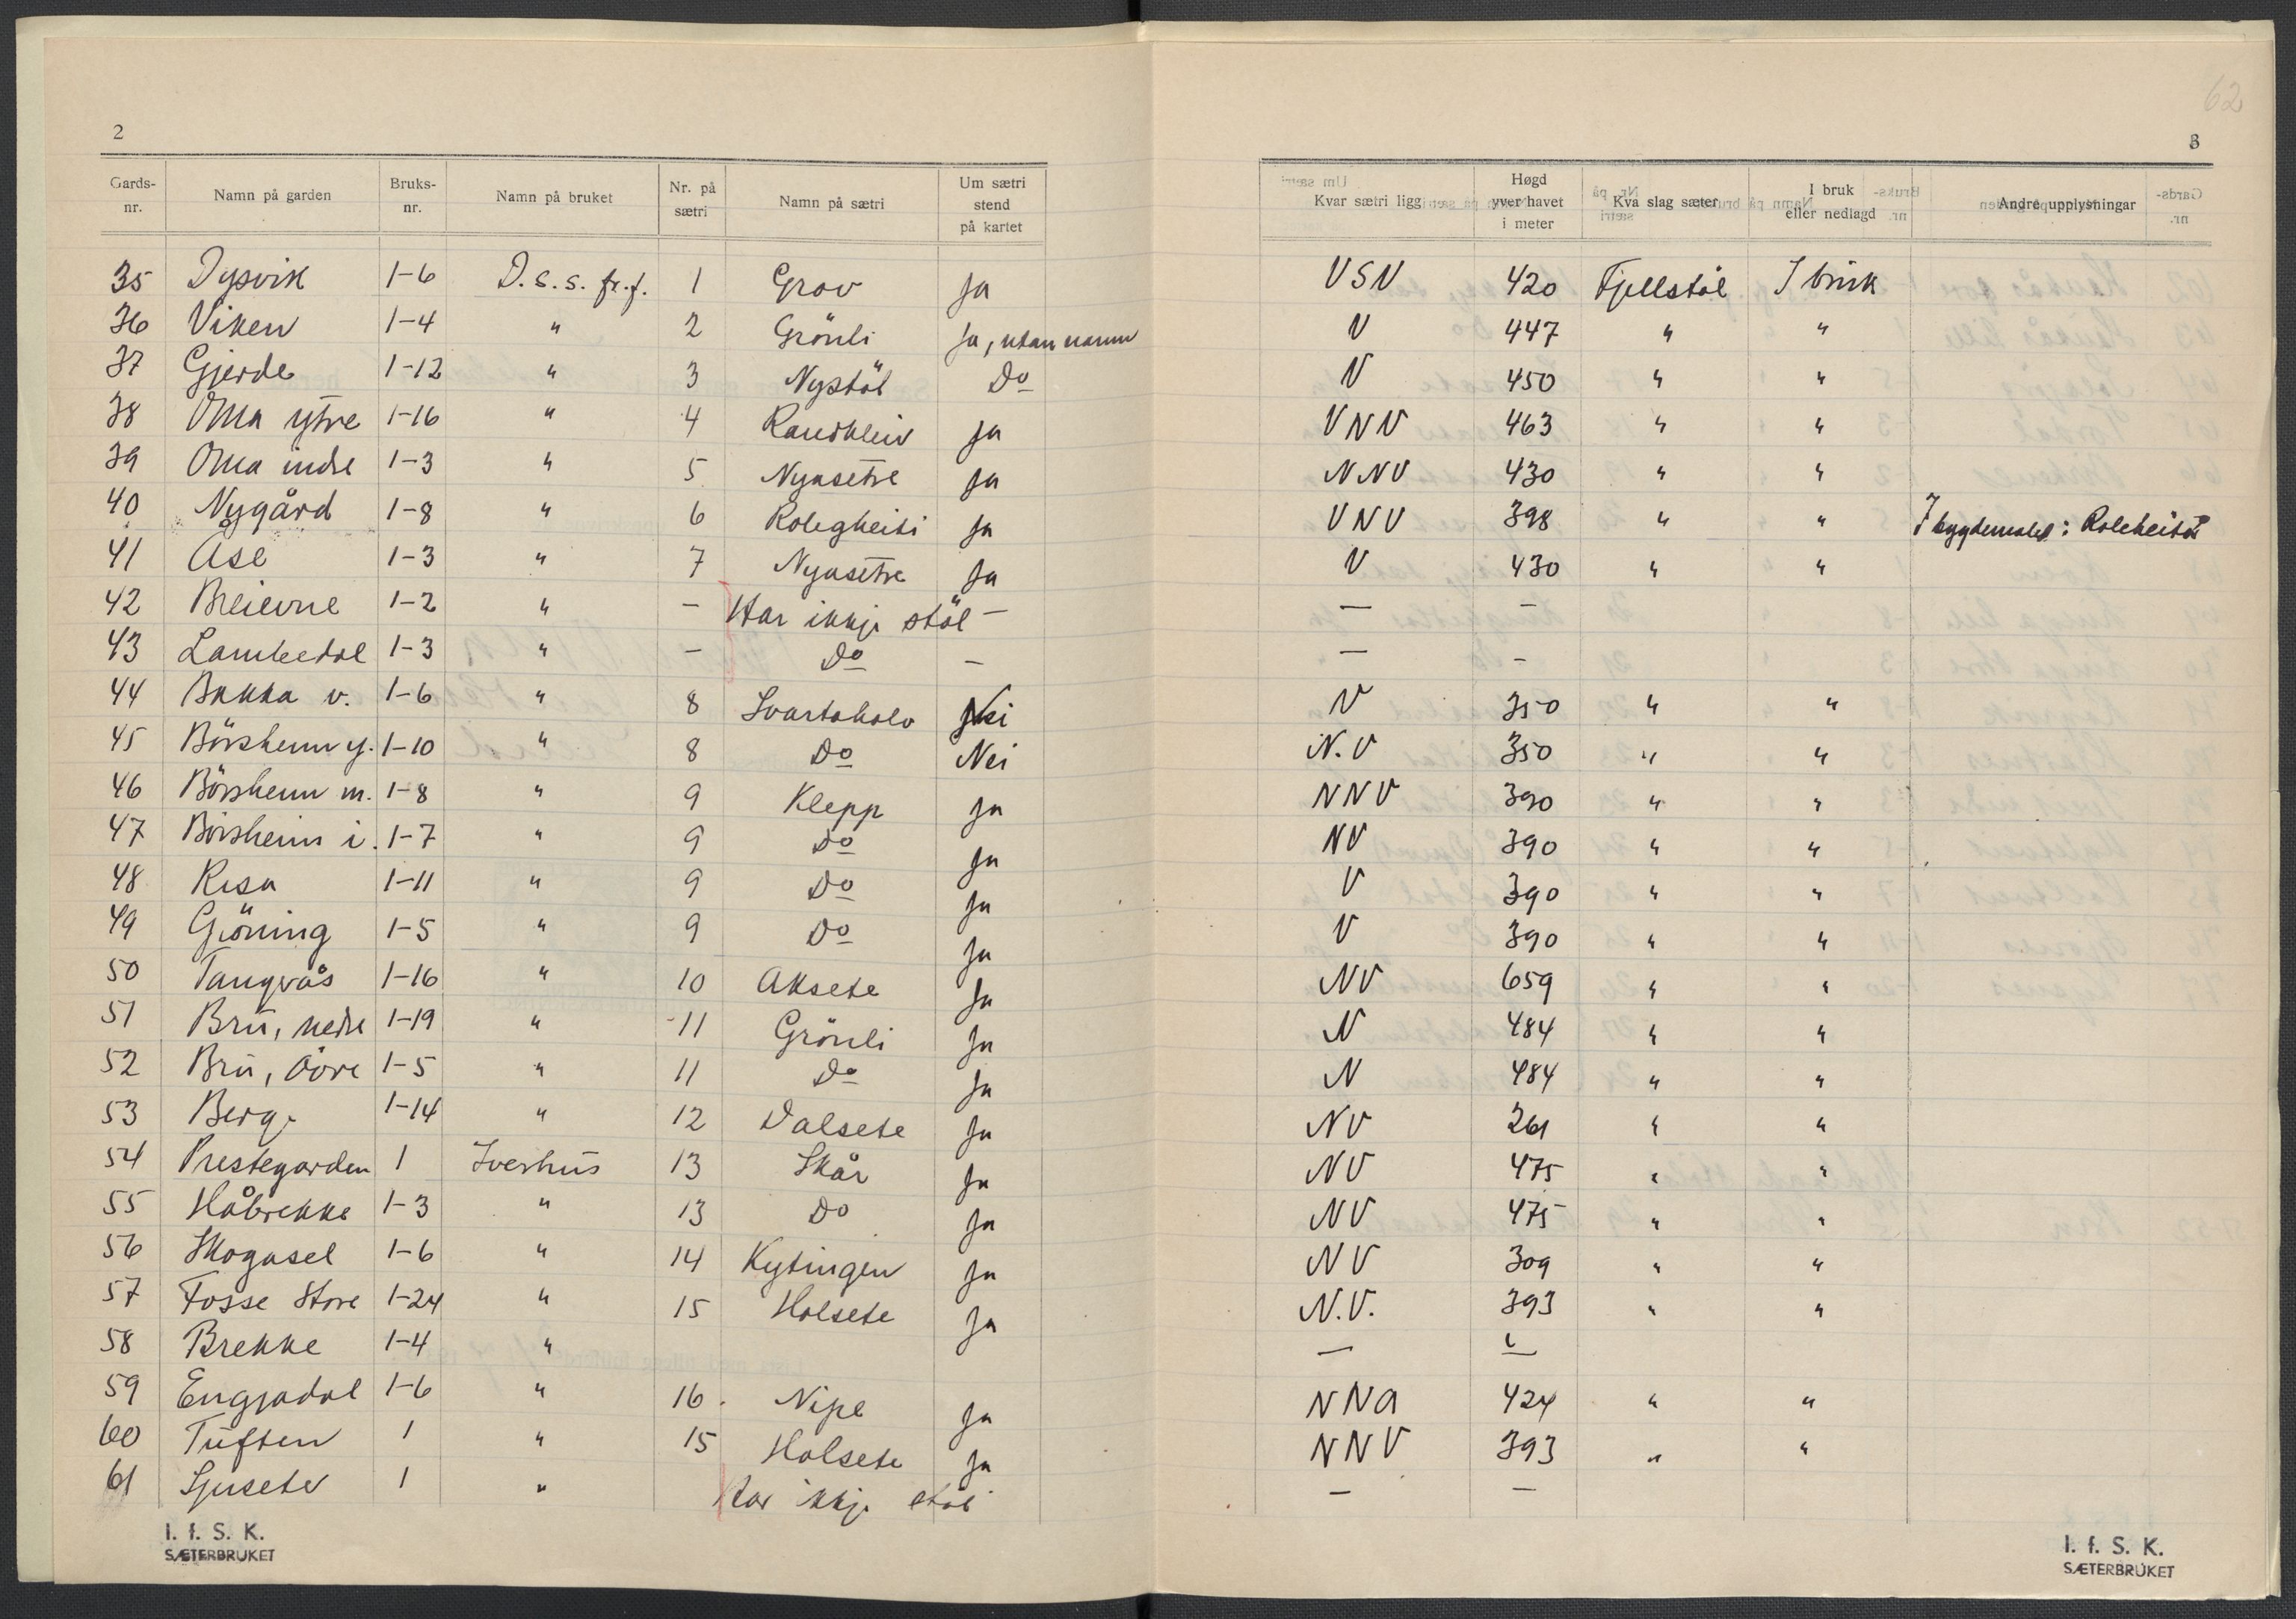 62
2
3
Gards-nr. | Namn på garden | Bruks-nr. | Namn på bruket | Nr. på sætri | Namn på sætri | Um sætri stend på kartet | Kvar sætri ligg | Høgd yver havet i meter | Kva slag sæter | I bruk eller nedlagd | Andre upplysningar
35 | Dysvik | 1-6 | D.s.s. fr.f. | 1 | Grov | Ja | VSV | 420 | Fjellstöl | I bruk
36 | Viken | 1-4 | " | 2 | Grönli | Ja, utan namn | V | 447 | " | "
37 | Gjerde | 1-12 | " | 3 | Nystöl | Do | V | 450 | " | "
38 | Oma ytre | 1-16 | " | 4 | Raudkleiv | Ja | VNV | 463 | " | "
39 | Oma indre | 1-3 | " | 5 | Nyasetre | Ja | NNV | 430 | " | "
40 | Nygård | 1-8 | " | 6 | Rolegheiti | Ja | VNV | 398 | " | " | I bygdemålet: Roleheitæ
41 | Åse | 1-3 | " | 7 | Nyasetre | Ja | V | 430 | " | "
42 | Breievne | 1-2 | " | — | Har ikkje stöl | — | — | —
43 | Lambedal | 1-3 | " | — | Do | — | — | —
44 | Bakka v. | 1-6 | " | 8 | Svartaholo | Nei | V | 350 | " | "
45 | Börsheim y. | 1-10 | " | 8 | Do | Nei | N.V | 350 | " | "
46 | Börsheim m. | 1-8 | " | 9 | Klepp | Ja | NNV | 390 | " | "
47 | Börsheim i. | 1-7 | " | 9 | Do | Ja | NV | 390 | " | "
48 | Risa | 1-11 | " | 9 | Do | Ja | V | 390 | " | "
49 | Gröning | 1-5 | " | 9 | Do | Ja | V | 390 | " | "
50 | Tangvås | 1-16 | " | 10 | Aksete | Ja | NV | 659 | " | "
51 | Bru, nedre | 1-19 | " | 11 | Grönli | Ja | N | 484 | " | "
52 | Bru, övre | 1-5 | " | 11 | Do | Ja | N | 484 | " | "
53 | Berge | 1-14 | " | 12 | Dalsete | Ja | NV | 261 | " | "
54 | Prestegarden | 1 | Iverhus | 13 | Skår | Ja | NV | 475 | " | "
55 | Håbrekke | 1-3 | " | 13 | Do | Ja | NV | 475 | " | "
56 | Skogasel | 1-6 | " | 14 | Kytingen | Ja | NV | 309 | " | "
57 | Fosse Store | 1-24 | " | 15 | Holsete | Ja | N.V. | 393 | " | "
58 | Brekke | 1-4 | " | — | —
59 | Engjadal | 1-6 | " | 16 | Nipe | Ja | NNA | 424 | " | "
60 | Tuften | 1 | " | 15 | Holsete | Ja | NNV | 393 | " | "
61 | Ljusete | 1 | " | Har ikkje stöl | — | —
I. f. S. K.
SÆTERBRUKET
I. f. S. K.
SÆTERBRUKET